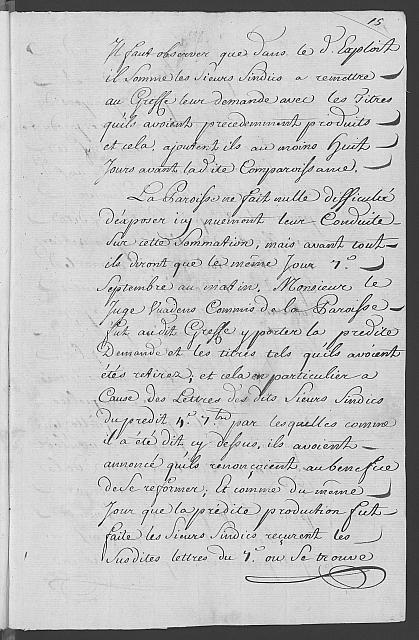 15
Il faut observer que dans le d. Exploit
il somme les Sieurs Sindics a remettre
au Greffe leur demande avec les Titres
qu'ils avoient precedemment produits
et cela, ajoutent ils au moins Huit
Jours avant ladite Comparoissance.
La Paroisse ne fait nulle difficulté
d'exposer icy nuement leur Conduite
sur cette Sommation, mais avant tout
ils diront que le même Jour 7.e
Septembre au matin, Monsieur le
Juge Vuadens Commis de la Paroisse
fut au dit Greffe y porter la prédite
Demande et les titres tels qu'ils avoient
étés retirez, et cela en particulier a
Cause des Lettres des dits Sieurs Sindics
du predit 4.e 7.bre par lesquelles comme
il a été dit cy dessus, ils avoient
annoncé qu'ils renonçoient au benefice
de se reformer, et comme du même
Jour que la prédite production fut
faite les Sieurs Sindics reçurent les
Susdites lettres du 7.e ou se trouve